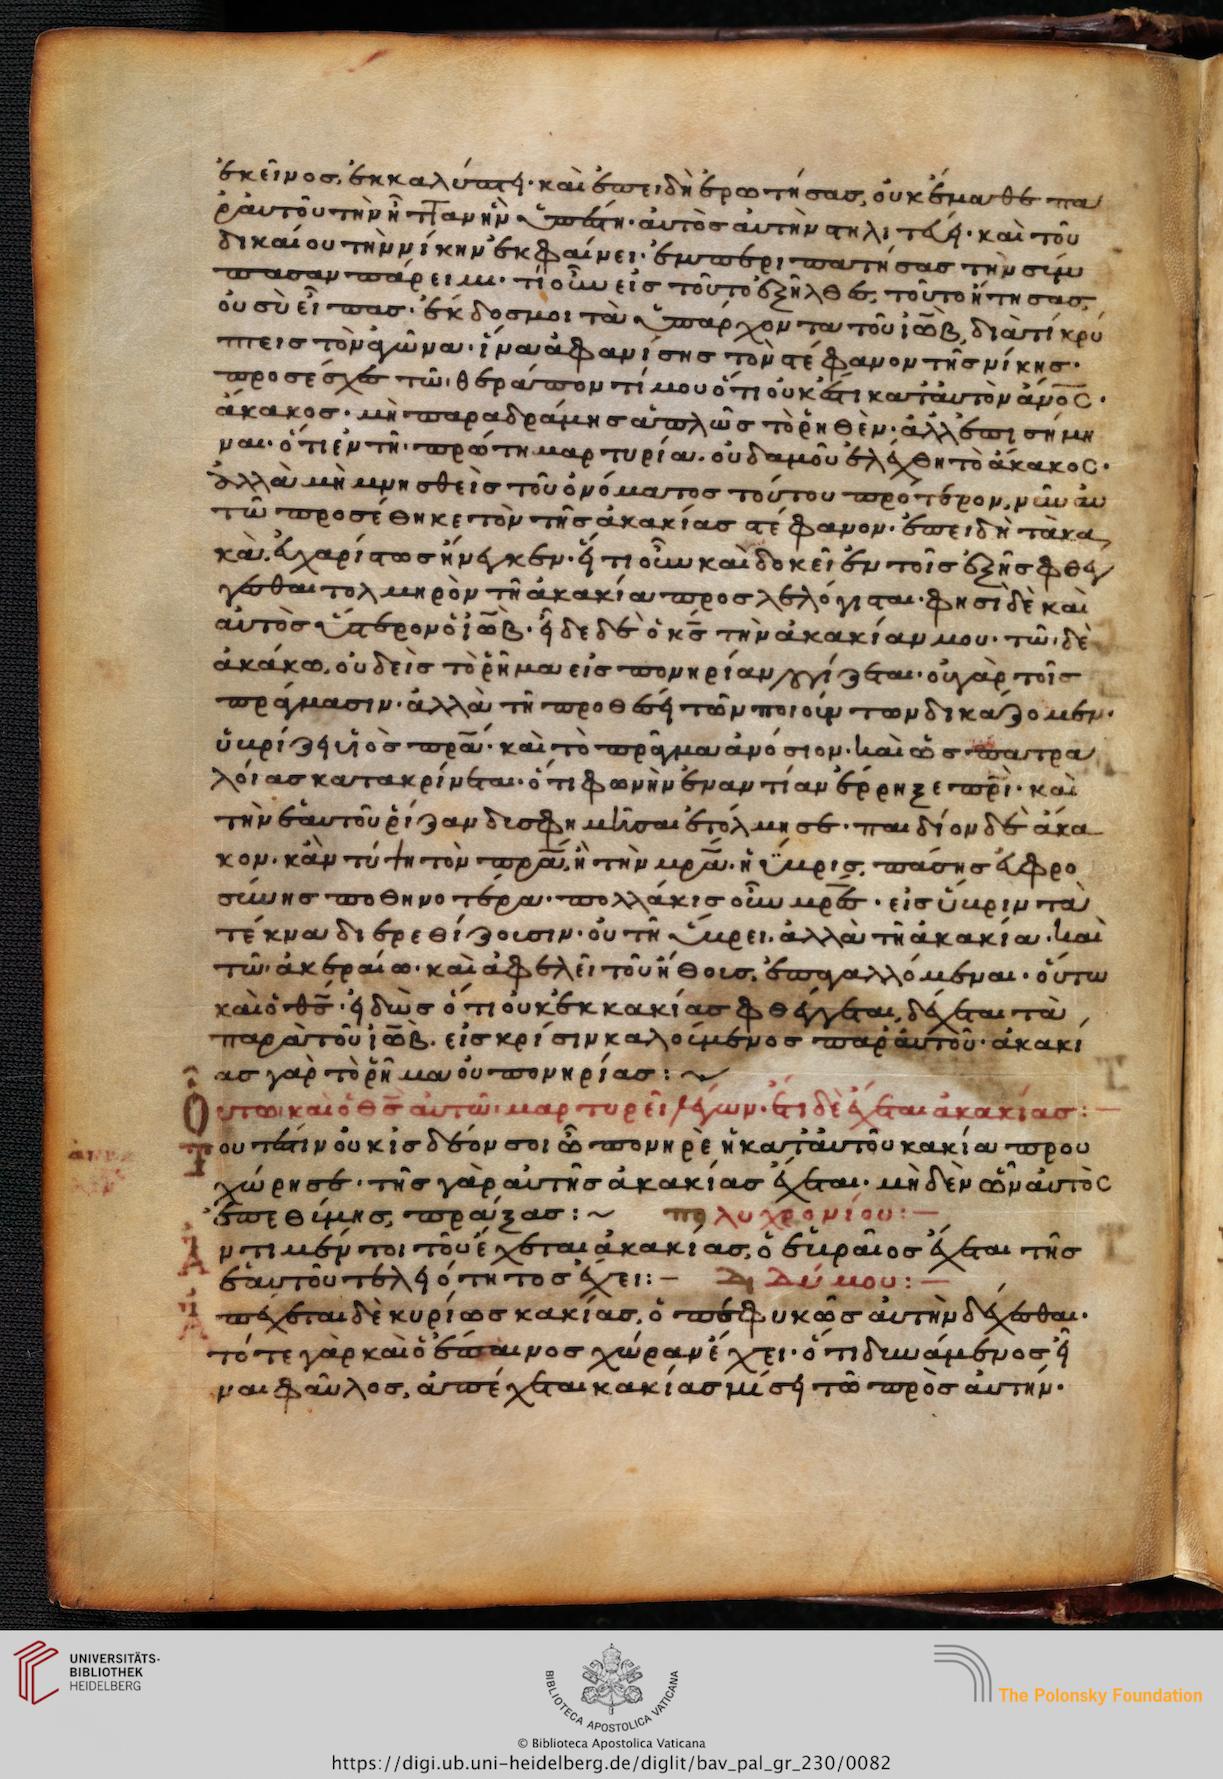 ἐκεῖνος, ἐκκαλύπτει· καὶ ἐπειδὴ ἐρωτήσας, οὐκ ἔμαθε πα
ρ' αὐτοῦ τὴν ἧτταν ἣν ὑπέστη· αὐτὸς αὐτὴν στηλιτεύει· καὶ τοῦ
δικαίου τὴν νίκην ἐκφαίνει· ἐμπεριπατήσας τὴν σύμ
πασαν πάρειμι· τί οὖν εἰς τοῦτο ἐξῆλθες, τοῦτο ᾔτησας,
οὐ σὺ εἶπας· ἔκδος μοι τὰ ὑπάρχοντα τοῦ ἰώβ, διὰ τί κρύ
πτεις τὸν ἀγῶνα· ἵνα ἀφανίσῃς τὸν στέφανον τῆς νίκης·
προσέσχες τῷ θεράποντί μου ὅτι οὐκ ἔστι κατ' αὐτὸν ἄνος·
ἄκακος· μὴ παραδράμῃς ἁπλῶς τὸ ῥηθὲν· ἀλλ' ἐπισήμη
ναι· ὅτι ἐν τῇ πρώτῃ μαρτυρία· οὐδαμοῦ ἐλέχθη τὸ ἄκακος·
ἀλλὰ μὴ μνησθεὶς τοῦ ὀνόματος τούτου πρότερον, νῦν αὐ
τῷ προσέθηκε τὸν τῆς ἀκακίας στέφανον· ἐπειδὴ τὰ κα
κὰ, εὐχαρίστως ἤνεγκεν· εἴ τι οὖν καὶ δοκεῖ ἐν τοῖς ἑξῆς φθέγ
γεσθαι τολμηρὸν τῇ ἀκακία προσλελόγισται· φησὶ δὲ καὶ
αὐτὸς ὕστερον ὁ ἰώβ· οἶδε δὲ ὁ κς τὴν ἀκακίαν μου· τῷ δὲ
ἀκάκω, οὐδεὶς τὸ ῥῆμα εἰς πονηρίαν λογίζεται· οὐ γὰρ τοῖς
πράγμασιν· ἀλλὰ τῇ προθέσει τῶν ποιούντων δικάζομεν·
ὑβρίζει υἱὸς πρα· καὶ τὸ πρᾶγμα ἀνόσιον· καὶ ὡς πατρα
λοίας κατακρίνεται· ὅτι φωνὴν ἐναντίαν ἔρρηξε πρι· καὶ
τὴν ἑαυτοῦ ῥίζαν δυσφημῆσαι ἐτόλμησε· παιδίον δὲ ἄκα
κον· κἂν τύπτη τὸν πρα, ἢ τὴν μρα· ἡ ὕβρις, πάσης εὐφρο
σύνης ποθηνοτέρα· πολλάκις οὖν μρες· εἰς ὕβριν τὰ
τέκνα διερεθίζουσιν· οὐ τῇ ὕβρει· ἀλλὰ τῇ ἀκακία· καὶ
τῷ ἀκεραίω· καὶ ἀφελεῖ τοῦ ἤθους, ἐπαγαλλόμεναι· οὕτω
καὶ ὁ θς· εἰδὼς ὅτι οὐκ ἐκ κακίας φθέγγεται, δέχεται τὰ
παρὰ τοῦ ἰώβ. εἰς κρίσιν καλούμενος παρ' αὐτοῦ· ἀκακί
ας γὰρ τὸ ῥῆμα οὐ πονηρίας:
Οὕτω καὶ ὁ θς αὐτῷ μαρτυρεῖ λέγων· ἔτι δὲ ἔχεται ἀκακίας:
Τουτέστιν οὐκ εἰς δέον σοι ὦ πονηρὲ ἡ κατ' αὐτοῦ κακία πρου
χώρησε· τῆς γὰρ αὐτῆς ἀκακίας ἔχεται· μηδὲν ὧν αὐτὸς
ἐπεθύμεις, πράξας: πολυχρονίου:
Ἀντι μέντοι τοῦ ἔχεται ἀκακίας, ὁ ἑβραῖος ἔχεται τῆς
ἑαυτοῦ τελειότητος ἔχει: Διδύμου:
Ἀπέχεται δὲ κυρίως κακίας, ὁ πεφυκὼς αὐτὴν δέχεσθαι·
τότε γὰρ καὶ ὁ ἔπαινος χώραν ἔχει· ὅτι δυνάμενος εἶ
ναι φαῦλος, ἀπέχεται κακίας μίσει τῷ πρὸς αὐτήν·
UNIVERSITÄTS-
BIBLIOTHEK
HEIDELBERG
BIBLIOTECA APOSTOLICA VATICANA
The Polonsky Foundation
© Biblioteca Apostolica Vaticana
https://digi.ub.uni-heidelberg.de/diglit/bav_pal_gr_230/0082